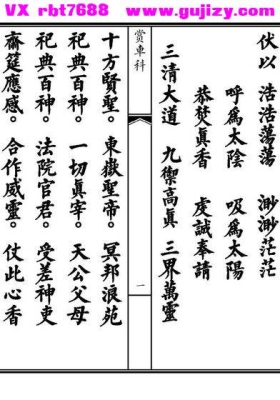 VX rbt7688 www.gujizy.com
伏以 浩浩蕩蕩 渺渺茫茫
呼爲太陰 吸爲太陽
恭焚真香 虔誠奉請
三清大道 九禦高真 三界萬靈
賞車科
一
十方賢聖。東嶽聖帝。冥邦浪苑
祀典百神。一切真宰。天公父母
祀典百神。法院官君。受差神吏
齋筵應感。合作威靈。仗此心香